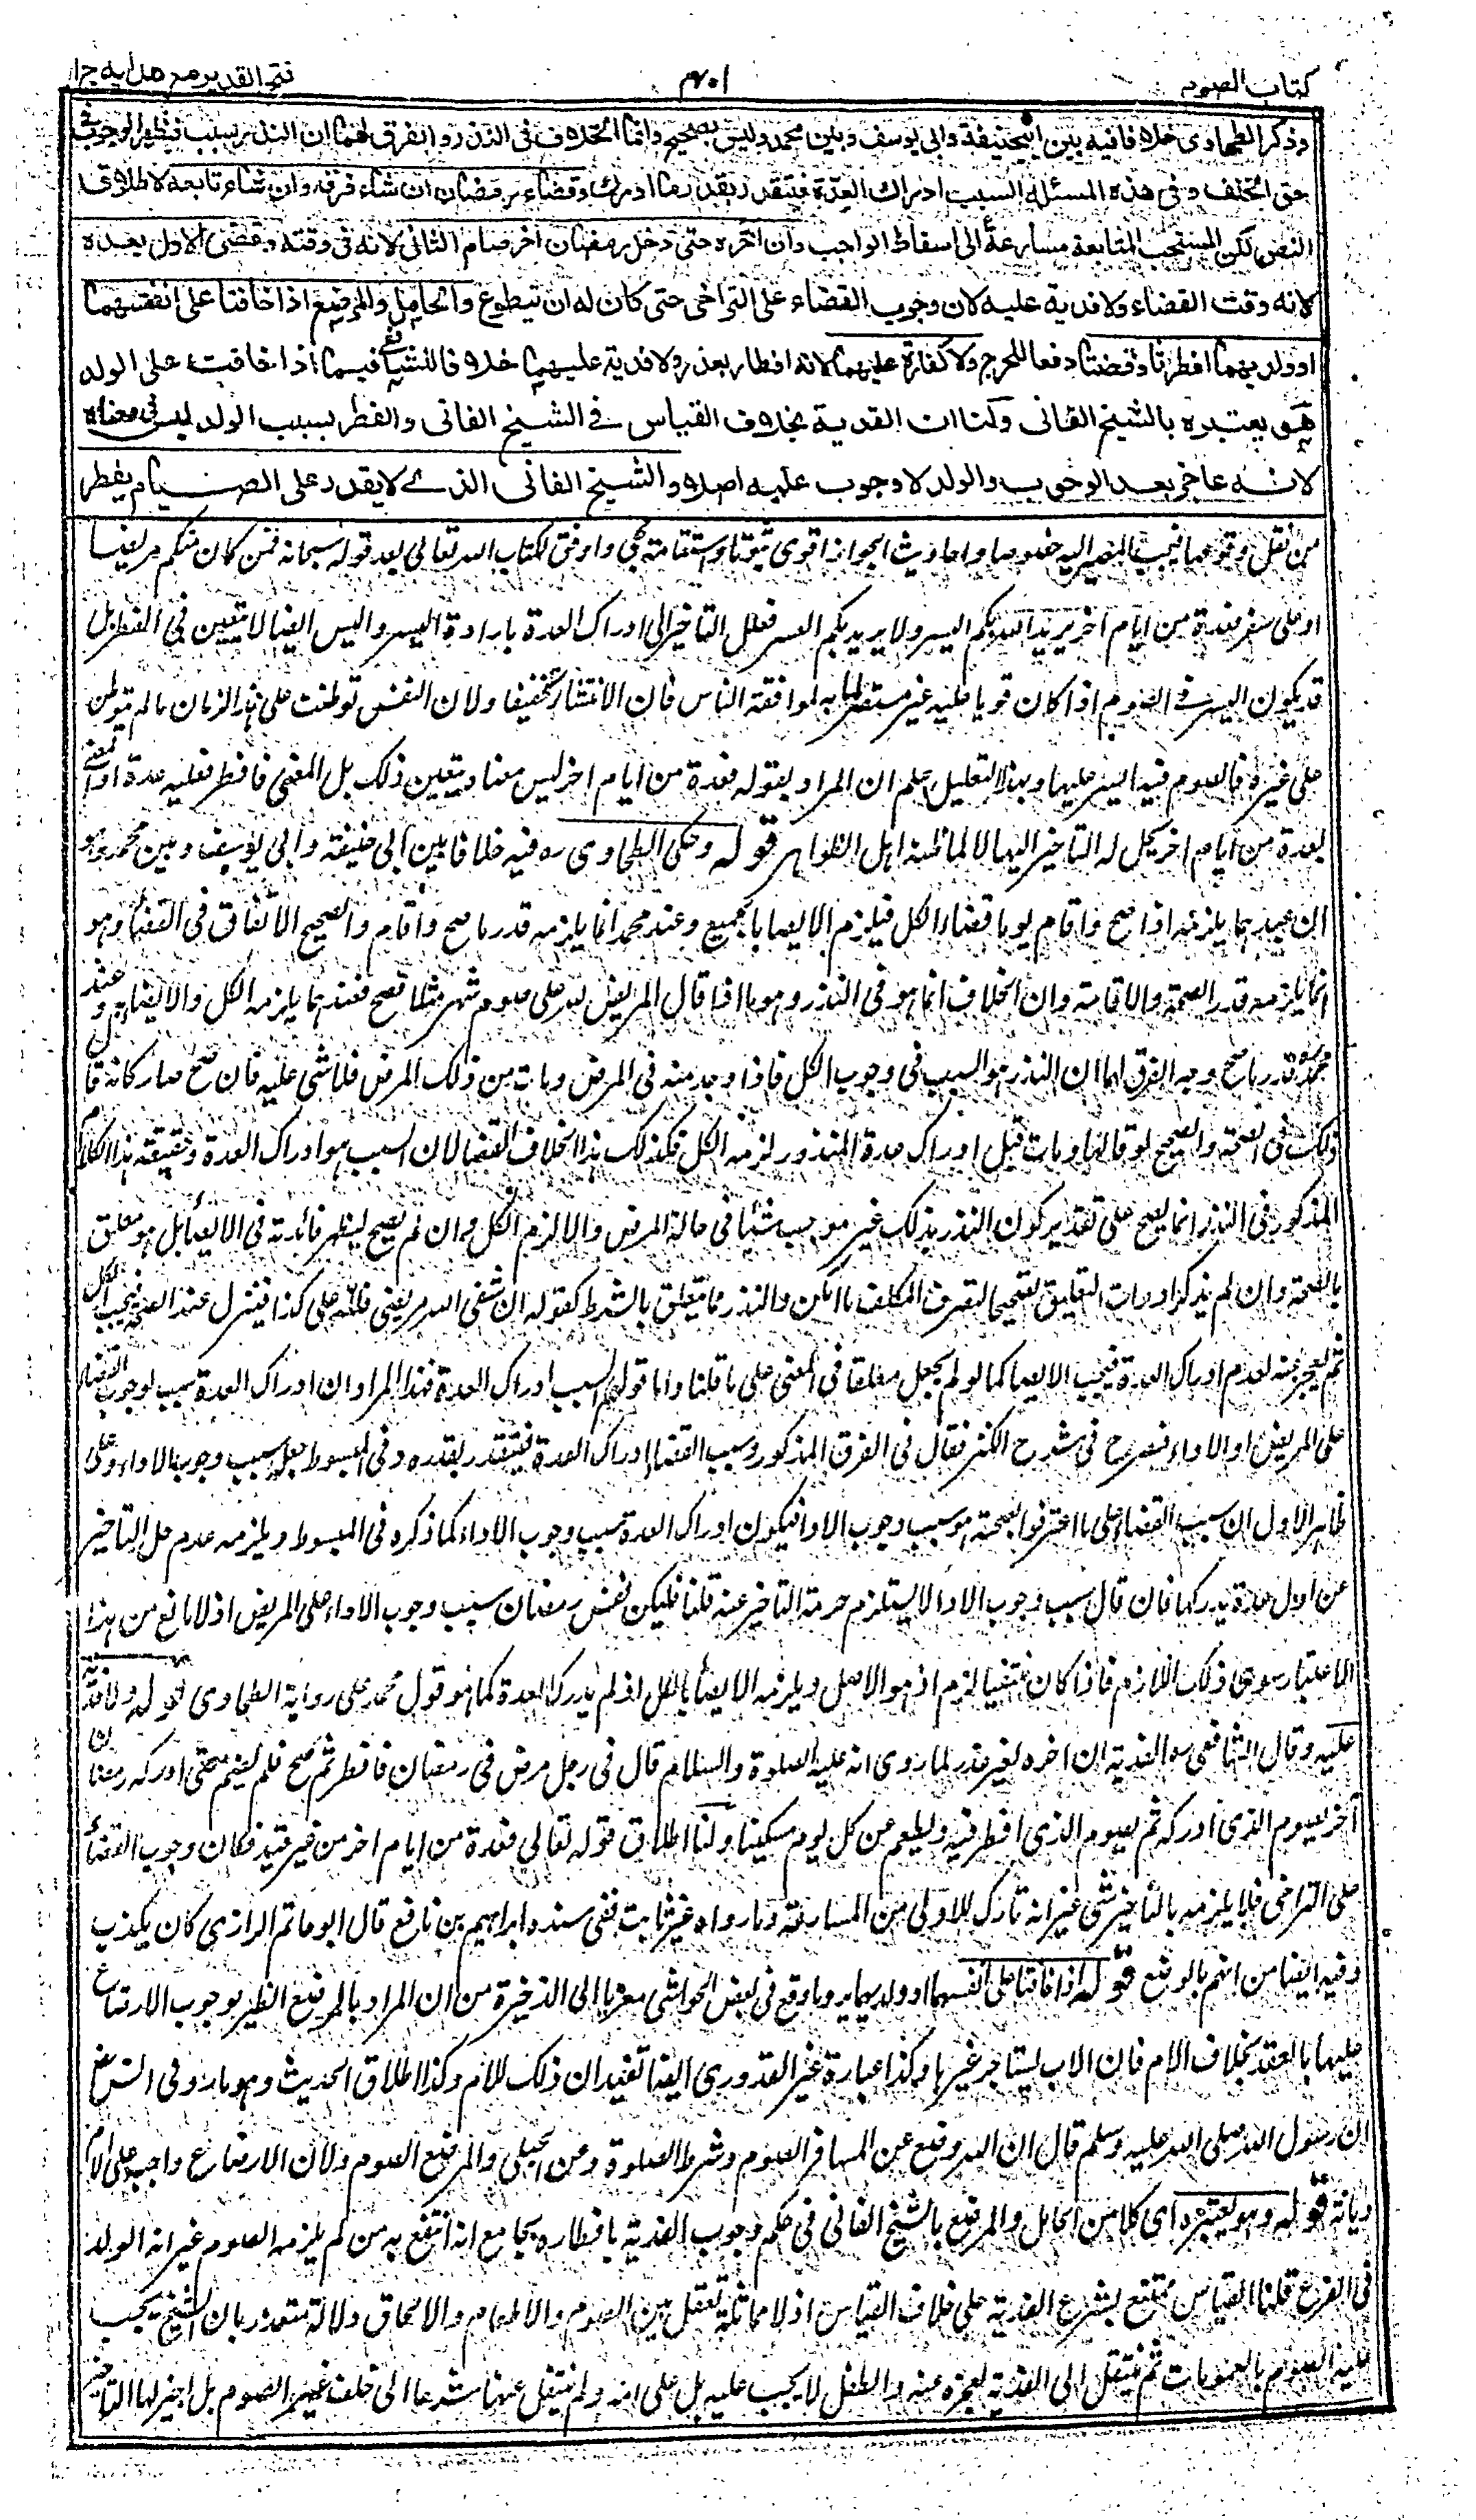 كتاب الصوم
٤٠١
فتح القدير مع هداية ج١
وذكر الطحاوى خلافا فيه بين ابيحنيفة وابي يوسف وبين محمد وليس بصحيح وانما الخلاف فى النذر والفرق لهما ان النذر سبب فيظهر الوجوب فى
حق الخلف وفى هذه المسئلة السبب ادراك العدة فيتقدر بقدر ما ادرك وقضاء رمضان ان شاء فرقه وان شاء تابعه لاطلاق
النص لكن المستحب المتابعة مسارعةً الى اسقاط الواجب وان اخره حتى دخل رمضان اخر صام الثانى لانه فى وقته وقضى الاول بعده
لانه وقت القضاء ولا فدية عليه لان وجوب القضاء على التراخى حتى كان له ان يتطوع والحامل والمرضع اذا خافتا على انفسهما
او ولديهما افطرتا وقضتا دفعا للحرج ولا كفارة عليهما لانه افطار بعذر ولا فدية عليهما خلافا للشافعى فيما اذا خافت على الولد
هو يعتبره بالشيخ الفانى ولنا ان الفدية بخلاف القياس فى الشيخ الفانى والفطر بسبب الولد ليس فى معناه
لانه عاجز بعد الوجوب والولد لا وجوب عليه اصلا والشيخ الفانى الذى لا يقدر على الصيام يفطر
من نقل وقوعها فيجب المصير اليه خصوصا واحاديث الجواز اقوى ثبوتا واستقامة مجئ واوفق لكتاب الله تعالى بعد قوله سبحانه فمن كان منكم مريضا
او على سفر فعدة من ايام اخر يريد الله بكم اليسر ولا يريد بكم العسر فعلل التاخير الى ادراك العدة بارادة اليسر واليسر ايضا لا يتعين فى الفطر بل
قد يكون اليسر فى الصوم اذا كان قويا عليه غير مستضر به لموافقة الناس فان الائتساء تخفيفا ولان النفس توطنت على هذا الزمان ما لم تتوطن
على غيره فالصوم فيه ايسر عليها وبهذا التعليل علم ان المراد بقوله فعدة من ايام اخر ليس معناه يتعين ذلك بل المعنى فافطر فعليه عدة او المعنى
فعدة من ايام اخر يحل له التاخير اليها لا كما ظنه اهل الظواهر قوله وحكى الطحاوى ره فيه خلافا بين ابى حنيفة وابى يوسف وبين محمد وهو
ان عندهما يلزمه اذا صح واقام يوما قضاء الكل فيلزم الايصاء بالجميع وعند محمد انما يلزمه قدر ما صح واقام والصحيح الاتفاق فى القضاء وهو
انما يلزمه قدر الصحة والاقامة وان الخلاف انما هو فى النذر وهو ما اذا قال المريض لله على صوم شهر مثلا فصح فعندهما يلزمه الكل والايصاء به وعند
محمد قدر ما صح وجه الفرق لهما ان النذر هو السبب فى وجوب الكل فاذا وجد منه فى المرض ومات من ذلك المرض فلا شى عليه فان صح صار كانه قال
ذلك فى الصحة والصحيح لو قالها ومات قبل ادراك عدة المنذور لزمه الكل فكذلك هذا بخلاف القضاء لان السبب هو ادراك العدة وحقيقة هذا الكلام
المذكور فى النذر انما يصح على تقدير كون النذر بذلك غير موجب شيئا فى حالة المرض والا لزم الكل وان لم يصح ليظهر فائدته فى الايصاء بل هو معلق
بالصحة وان لم يذكر اداة التعليق تصحيحا لتصرف المكلف ما امكن والنذر مما يتعلق بالشرط كقوله ان شفى الله مريضى فلله على كذا فينزل عند الصحة فيجب الكل
ثم يعجز عنه لعدم ادراك العدة فيجب الايصاء كما لو لم يجعل معلقا فى المعنى على ما قلنا واما قولهم السبب ادراك العدة فهذا المراد ان ادراك العدة سبب لوجوب القضاء
على المريض او الاداء فصرح فى شرح الكنز فقال فى الفرق المذكور وسبب القضاء ادراك العدة فيتقدر بقدره وفى المبسوط جعله سبب وجوب الاداء وعلى
ظاهر الاول ان سبب القضاء على ما اعترفوا بصحته هو سبب وجوب الاداء فيكون ادراك العدة سبب وجوب الاداء كما ذكره فى المبسوط ويلزمه عدم حل التاخير
عن اول عدة يدركها فان قال سبب وجوب الاداء لا يستلزم حرمة التاخير عنه قلنا فليكن نفس رمضان سبب وجوب الاداء على المريض اذ لا مانع من هذا
الاعتبار سوى ذلك اللازم فاذا كان منتفيا لزم اذ هو الاصل ويلزمه الايصاء بالكل اذ لم يدرك العدة كما هو قول محمد على رواية الطحاوى قوله ولا فدية
عليه وقال الشافعى ره الفدية ان اخره لغير عذر لما روى انه عليه الصلوة والسلام قال فى رجل مرض فى رمضان فافطر ثم صح فلم يصم حتى ادركه رمضان
آخر يصوم الذى ادركه ثم يصوم الذى افطر فيه ويطعم عن كل يوم مسكينا ولنا اطلاق قوله تعالى فعدة من ايام اخر من غير قيد فكان وجوب القضاء
على التراخى فلا يلزمه بالتاخير شى غير انه تارك للاولى من المسارعة وما رواه غير ثابت ففى سنده ابراهيم بن نافع قال ابو حاتم الرازى كان يكذب
وفيه ايضا من اتهم بالوضع قوله اذا خافتا على انفسهما او ولديهما يرد ما وقع فى بعض الحواشى معزيا الى الذخيرة من ان المراد بالمرضع الظئر لوجوب الارضاع
عليها بالعقد بخلاف الام فان الاب يستاجر غيرها وكذا عبارة غير القدورى ايضا تفيد ان ذلك للام وكذا اطلاق الحديث وهو ما روى انس رض
ان رسول الله صلى الله عليه وسلم قال ان الله وضع عن المسافر الصوم وشطر الصلوة وعن الحبلى والمرضع الصوم ولان الارضاع واجب على الام
ديانة قوله وهو يعتبره اى كلا من الحامل والمرضع بالشيخ الفانى فى حكم وجوب الفدية بافطاره بجامع انه انتفع به من لم يلزمه الصوم غير انه الولد
فى الفرع قلنا القياس ممتنع بشرع الفدية على خلاف القياس اذ لا مماثلة تعقل بين الصوم والاطعام والالحاق دلالة متعذر بان الشيخ يجب
عليه الصوم بالعمومات ثم ينتقل الى الفدية لعجزه عنه والطفل لا يجب عليه بل على امه ولم ينتقل عنها شرعا الى خلف غير الصوم بل اجيز لها التاخير